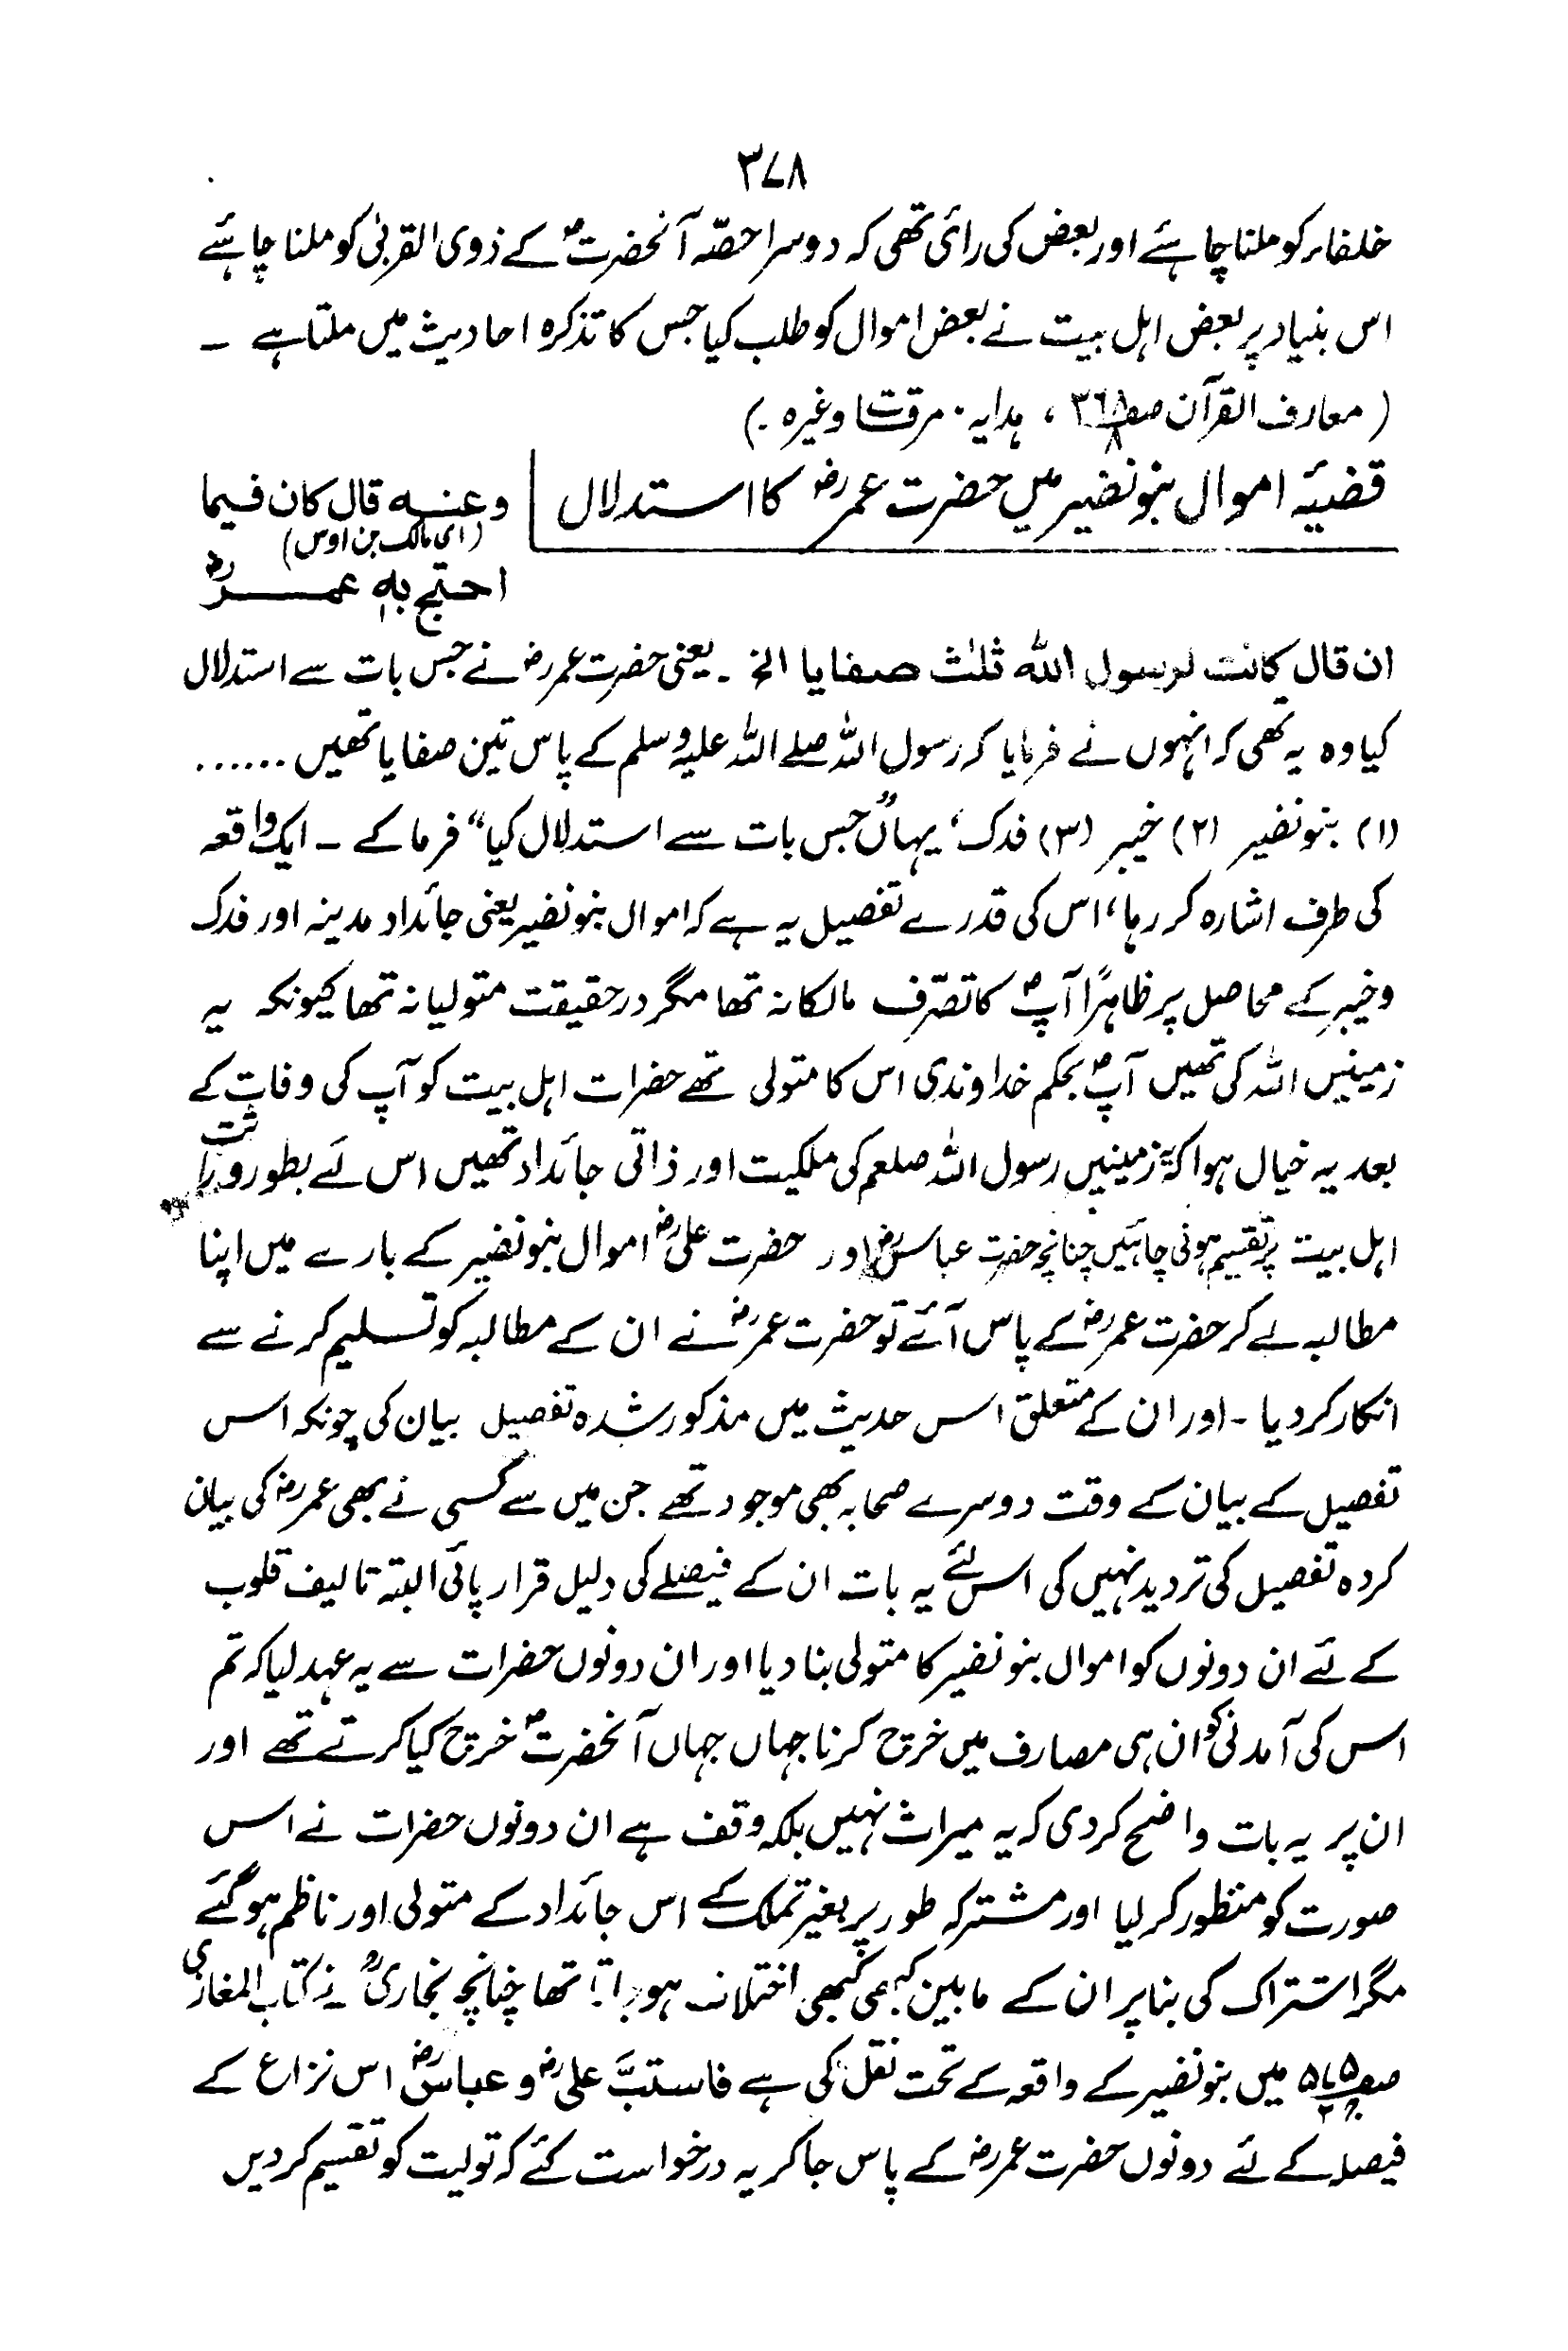 ۳۷۸
خلفاء کو ملنا چاہئے اور بعض کی رائ تھی کہ دوسرا حصّہ آنحضرتؐ کے ذوی القربیٰ کو ملنا چاہئے
اس بنیاد پر بعض اہل بیت نے بعض اموال کو طلب کیا جس کا تذکرہ احادیث میں ملتا ہے ۔
( معارف القرآن صـ۳۶۸/۸ ، ہدایہ ، مرقات وغیرہ ۔)
قضیّہ اموال بنو نضیر میں حضرت عمرؓ کا استدلال
وعنہ قال کان فیما
(ای مالک بن اوس)
احتج بہ عمرؓ
ان قال کانت لرسول اللّٰہ ثلٰث صفایا الخ ۔ یعنی حضرت عمرؓ نے جس بات سے استدلال
کیا وہ یہ تھی کہ انہوں نے فرمایا کہ رسول اللّٰہ صلے اللّٰہ علیہ وسلم کے پاس تین صفایا تھیں ......
(۱) بنو نضیر (۲) خیبر (۳) فدک ، یہاں ”جس بات سے استدلال کیا“ فرما کے ۔ ایک واقعہ
کی طرف اشارہ کر رہا ، اس کی قدرے تفصیل یہ ہے کہ اموال بنو نضیر یعنی جائداد مدینہ اور فدک
وخیبر کے محاصل پر ظاہراً آپؐ کا تصرّف مالکانہ تھا مگر درحقیقت متولیانہ تھا کیونکہ یہ
زمینیں اللّٰہ کی تھیں آپؐ بحکم خداوندی اس کا متولی تھے حضرات اہل بیت کو آپ کی وفات کے
بعد یہ خیال ہوا کہ یہ زمینیں رسول اللّٰہ صلعم کی ملکیت اور ذاتی جائداد تھیں اس لئے بطور وراثت
اہل بیت پر تقسیم ہونی چاہئیں چنانچہ حضرت عباسؓ اور حضرت علیؓ اموال بنو نضیر کے بارے میں اپنا
مطالبہ لے کر حضرت عمرؓ کے پاس آئے تو حضرت عمرؓ نے ان کے مطالبہ کو تسلیم کرنے سے
انکار کر دیا ۔ اور ان کے متعلق اس حدیث میں مذکور شدہ تفصیل بیان کی چونکہ اس
تفصیل کے بیان کے وقت دوسرے صحابہ بھی موجود تھے جن میں سے کسی نے بھی عمرؓ کی بیان
کردہ تفصیل کی تردید نہیں کی اس لئے یہ بات ان کے فیصلے کی دلیل قرار پائی البتہ تالیف قلوب
کے لئے ان دونوں کو اموال بنو نضیر کا متولی بنا دیا اور ان دونوں حضرات سے یہ عہد لیا کہ تم
اس کی آمدنی کو ان ہی مصارف میں خرچ کرنا جہاں جہاں آنحضرتؐ خرچ کیا کرتے تھے اور
ان پر یہ بات واضح کر دی کہ یہ میراث نہیں بلکہ وقف ہے ان دونوں حضرات نے اس
صورت کو منظور کر لیا اور مشترکہ طور پر بغیر تملک کے اس جائداد کے متولی اور ناظم ہو گئے
مگر اشتراک کی بنا پر ان کے مابین کبھی کبھی اختلاف ہو جاتا تھا چنانچہ بخاریؒ نے کتاب المغازی
میں بنو نضیر کے واقعہ کے تحت نقل کی ہے فاستبَّ علیؓ و عباسؓ اس نزاع کے
فیصلہ کے لئے دونوں حضرت عمرؓ کے پاس جا کر یہ درخواست کئے کہ تولیت کو تقسیم کر دیں